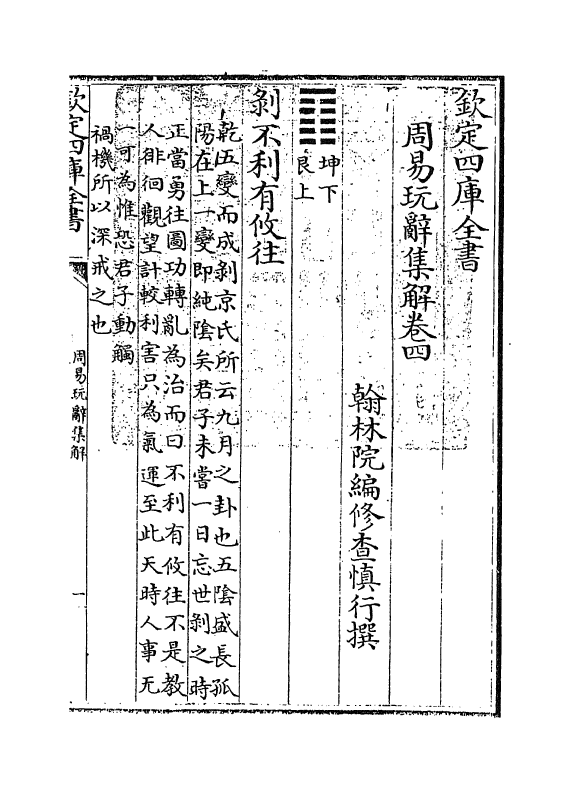 欽定四庫全書
周易玩辭集解卷四
翰林院編修查慎行撰
坤下
艮上
剝不利有攸往
乾五變而成剝京氏所云九月之卦也五陰盛長孤
陽在上一變即純陰矣君子未嘗一日忘世剝之時
正當勇往圖功轉亂為治而曰不利有攸往不是教
人徘徊觀望計較利害只為氣運至此天時人事无
一可為惟恐君子動觸
禍機所以深戒之也
欽定四庫全書
周易玩辭集解
一